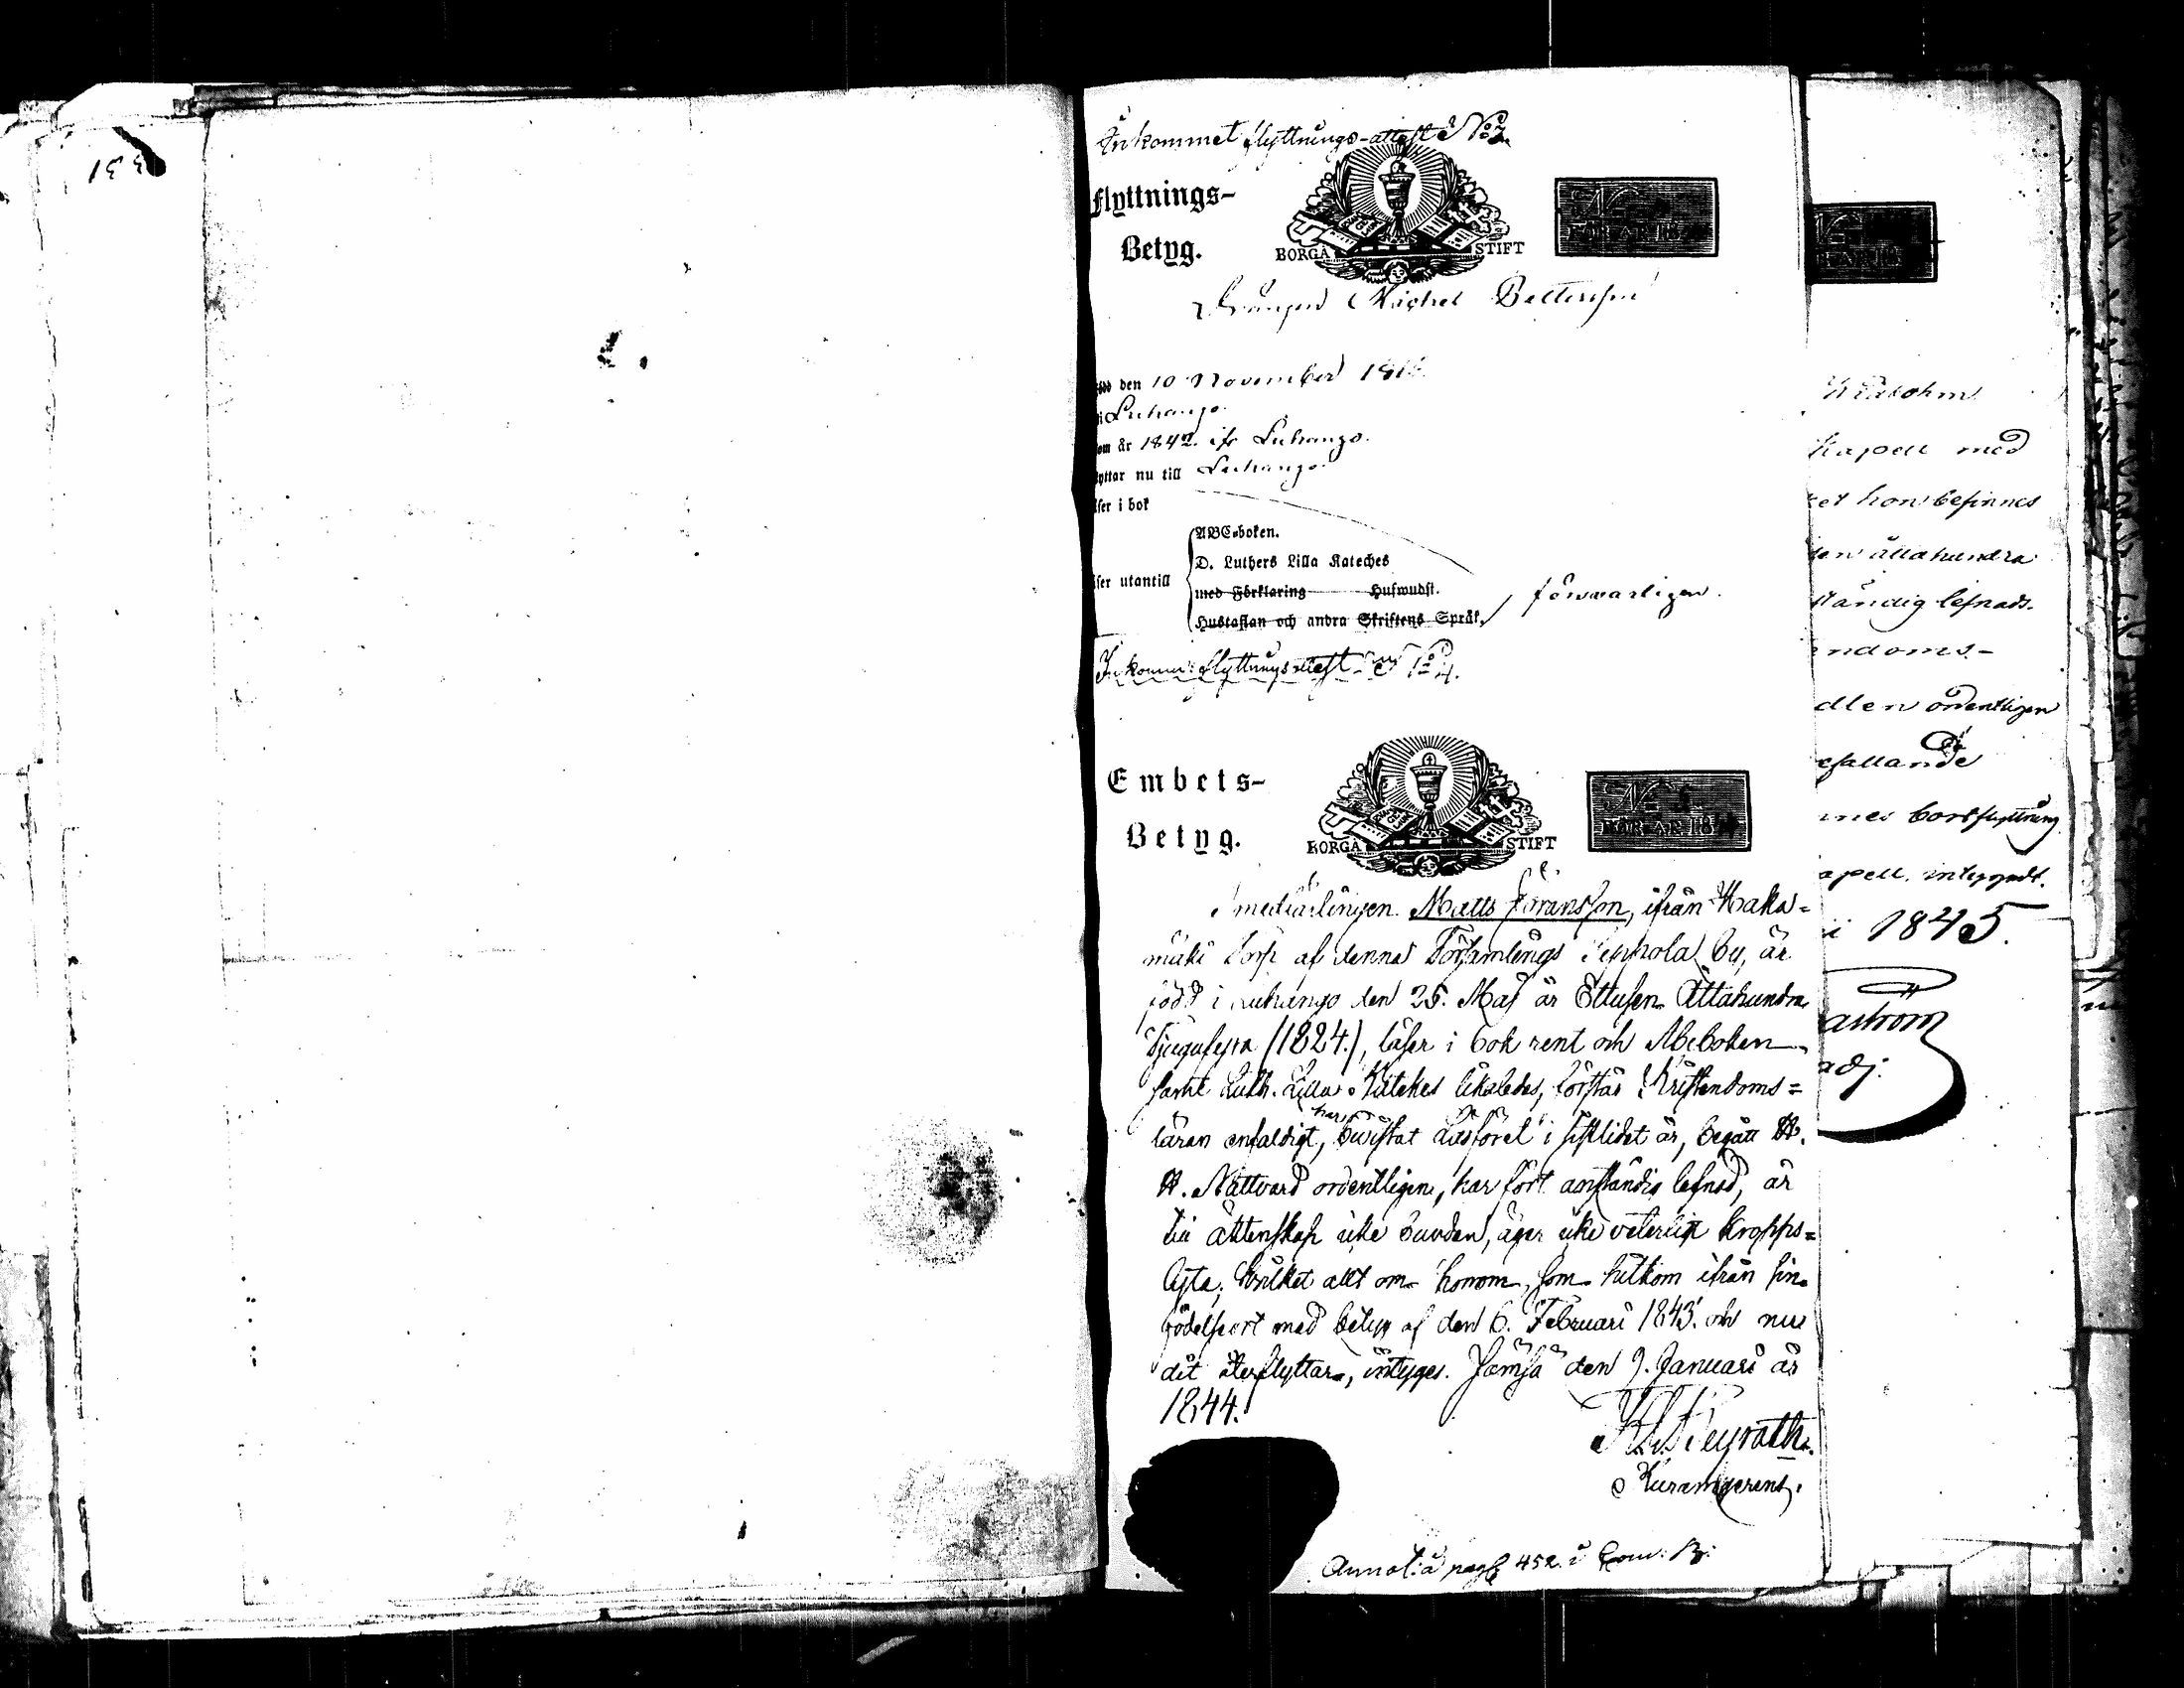 Inkommet flyttnings-attest No 3.
Flyttnings-
Betyg.
BORGÅ STIFT
FÖR ÅR 18
Drängen Michel Bettersson
född den 10 November 181
i Luhango.
om år 1842. ifr Luhango.
flyttar nu till Luhango.
läser i bok
läser utantill
ABC-boken.
D. Luthers Lilla Kateches
med Förklaring Hufwudst.
Hustaflan och andra Skriftens Språk,
försvarligen.
Inkomm: flyttningsattest No 4.
Embets-
Betyg.
BORGÅ STIFT
FÖR ÅR 18
Smedlärlingen Matts Göransson, ifrån Haka=
mäki Torp af denna Församlings Seppola by, är
född i Luhango den 25. Maj år Ettusen Åttahundra
Tjugufyra (1824.), läser i bok rent och Abcboken
samt Luth. Lilla Kateches likaledes, förstår Kristendoms=
läran enfaldigt, har bevistat Läsförel i sistlidet år, begått H.
H. Nattvard ordentligen, har fört anständig lefnad, är
till äktenskap icke bunden, äger icke veterligt kropps=
lyte; hvilket allt om honom, som hitkom ifrån sin
födelseort med betyg af den 6. Februari 1843. och nu
dit återflyttar, intyges. Jämsä den 9. Januari år
1844.
Neyrath.
Kuramgerens.
Annot: å pag 452. i Com: B:
31
Kapell med
et hon befinnes
den åttahundra
ständig lefnads-
ndoms-
dlen ordentligen
efallande
nes bortflyttning
apell, intygadt.
i 1845.
aström
adj.